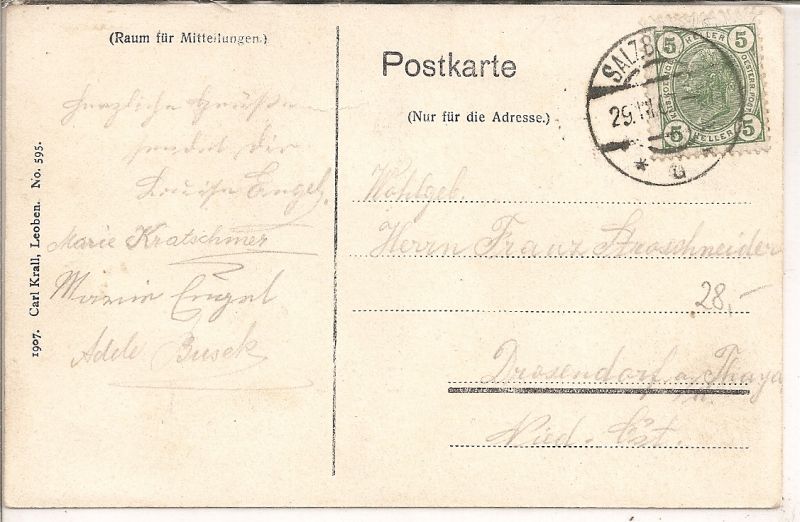 (Raum für Mitteilungen.)
Herzliche Grüße
sendet die
Louise Engel
Marie Kratschmer
Marie Engel
Adele Busek
1907. Carl Krall, Leoben. No. 595.
Postkarte
(Nur für die Adresse.)
SALZB
29.
5 HELLER 5
OESTERR. POST
5 HELLER 5
Wohlgeb.
Herrn Franz Stroschneider
28,-
Drosendorf a/Thaya
Nied. Öst.